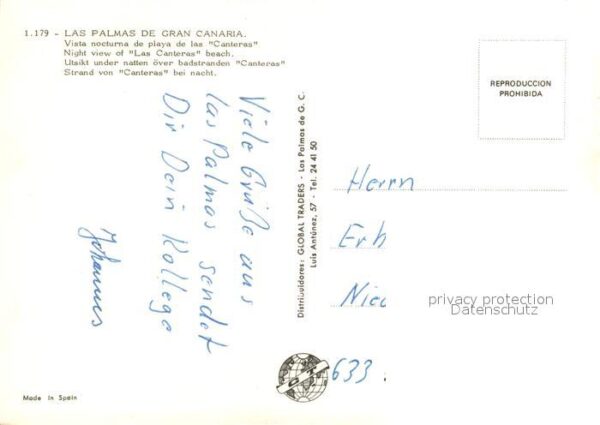 1.179 - LAS PALMAS DE GRAN CANARIA.
Vista nocturna de playa de las "Canteras"
Night view of "Las Canteras" beach.
Utsikt under natten över badstranden "Canteras"
Strand von "Canteras" bei nacht.
Viele Grüße aus
Las Palmas sendet
Dir Dein Kollege
Johannes
Distribuidores: GLOBAL TRADERS - Las Palmas de G. C.
Luis Antúnez, 57 - Tel. 24 41 50
REPRODUCCION
PROHIBIDA
Herrn
Erh
Nied
privacy protection
Datenschutz
633
Made In Spain